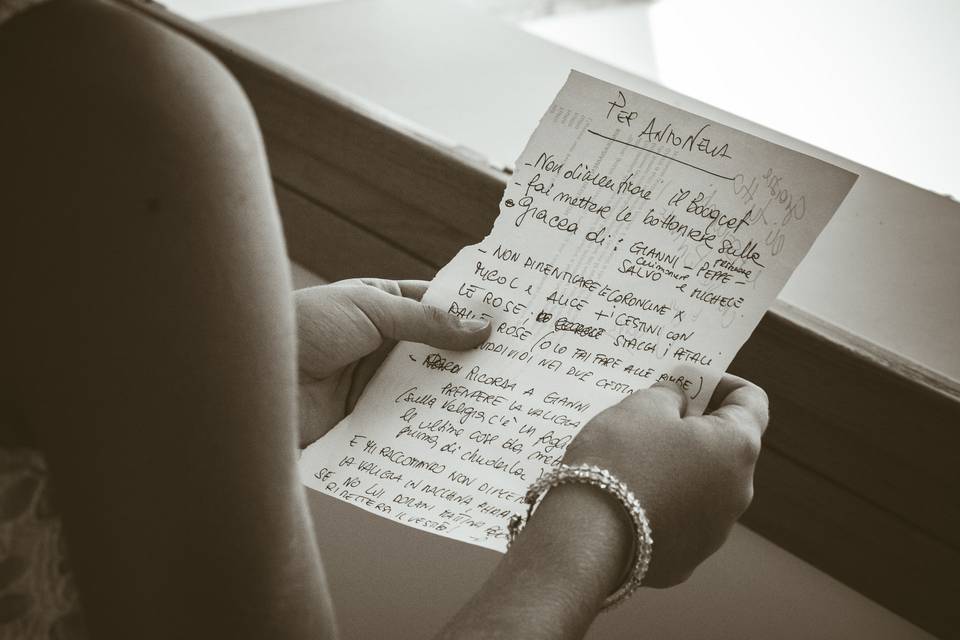 PER ANTONELLA
- Non dimenticare il Bocquet
- fai mettere le bottoniere sulla
- Giacca di: GIANNI - PEPPE -
SALVO e MICHELE
- NON DIMENTICARE LE CORONCINE X
MICOL e ALICE + i CESTINI CON
LE ROSE; STACCA i PETALI
DALLE ROSE (O LO FAI FARE ALLE
DIVIDI NEI DUE CESTINI
- RICORDA A GIANNI
PRENDERE LA VALIGIA
(sulla valigia c'è un foglio
le ultime cose da
prima di chiuderla
E MI RACCOMANDO NON DIMEN
LA VALIGIA IN MACCHINA
SE NO LUI DOMANI MATTINA
SI RIMETTERÀ IL VESTITO